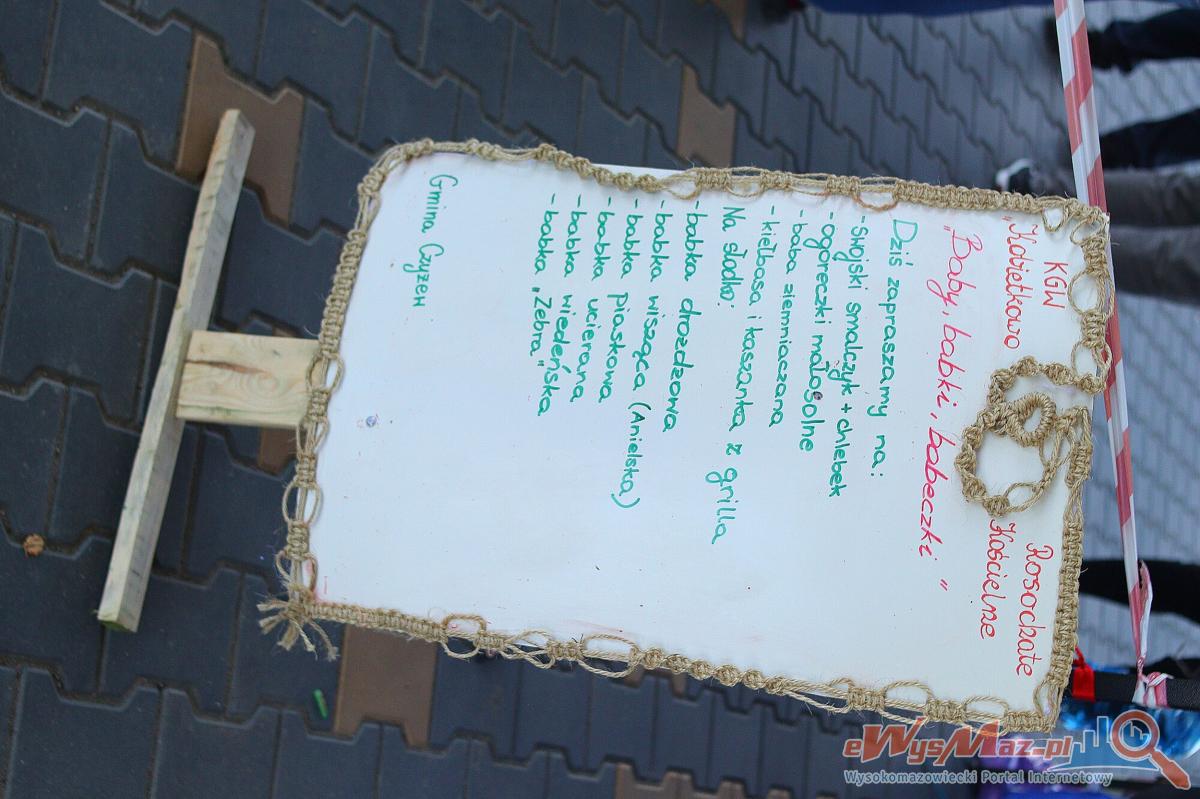 KGW
„Kobietkowo
Rosochate
Kościelne
„Baby, babki, babeczki"
Dziś zapraszamy na:
- swojski smalczyk + chlebek
- ogóreczki małosolne
- babba ziemniaczana
- kiełbasa i kaszanka z grilla
Na słodko:
- babka drożdżowa
- babka wisząca (Anielska)
- babka piaskowa
- babka ucierana
- babka wiedeńska
- babka „Zebra"
Gmina Czyżew
eWysMaz.pl
Wysokomazowiecki Portal Internetowy